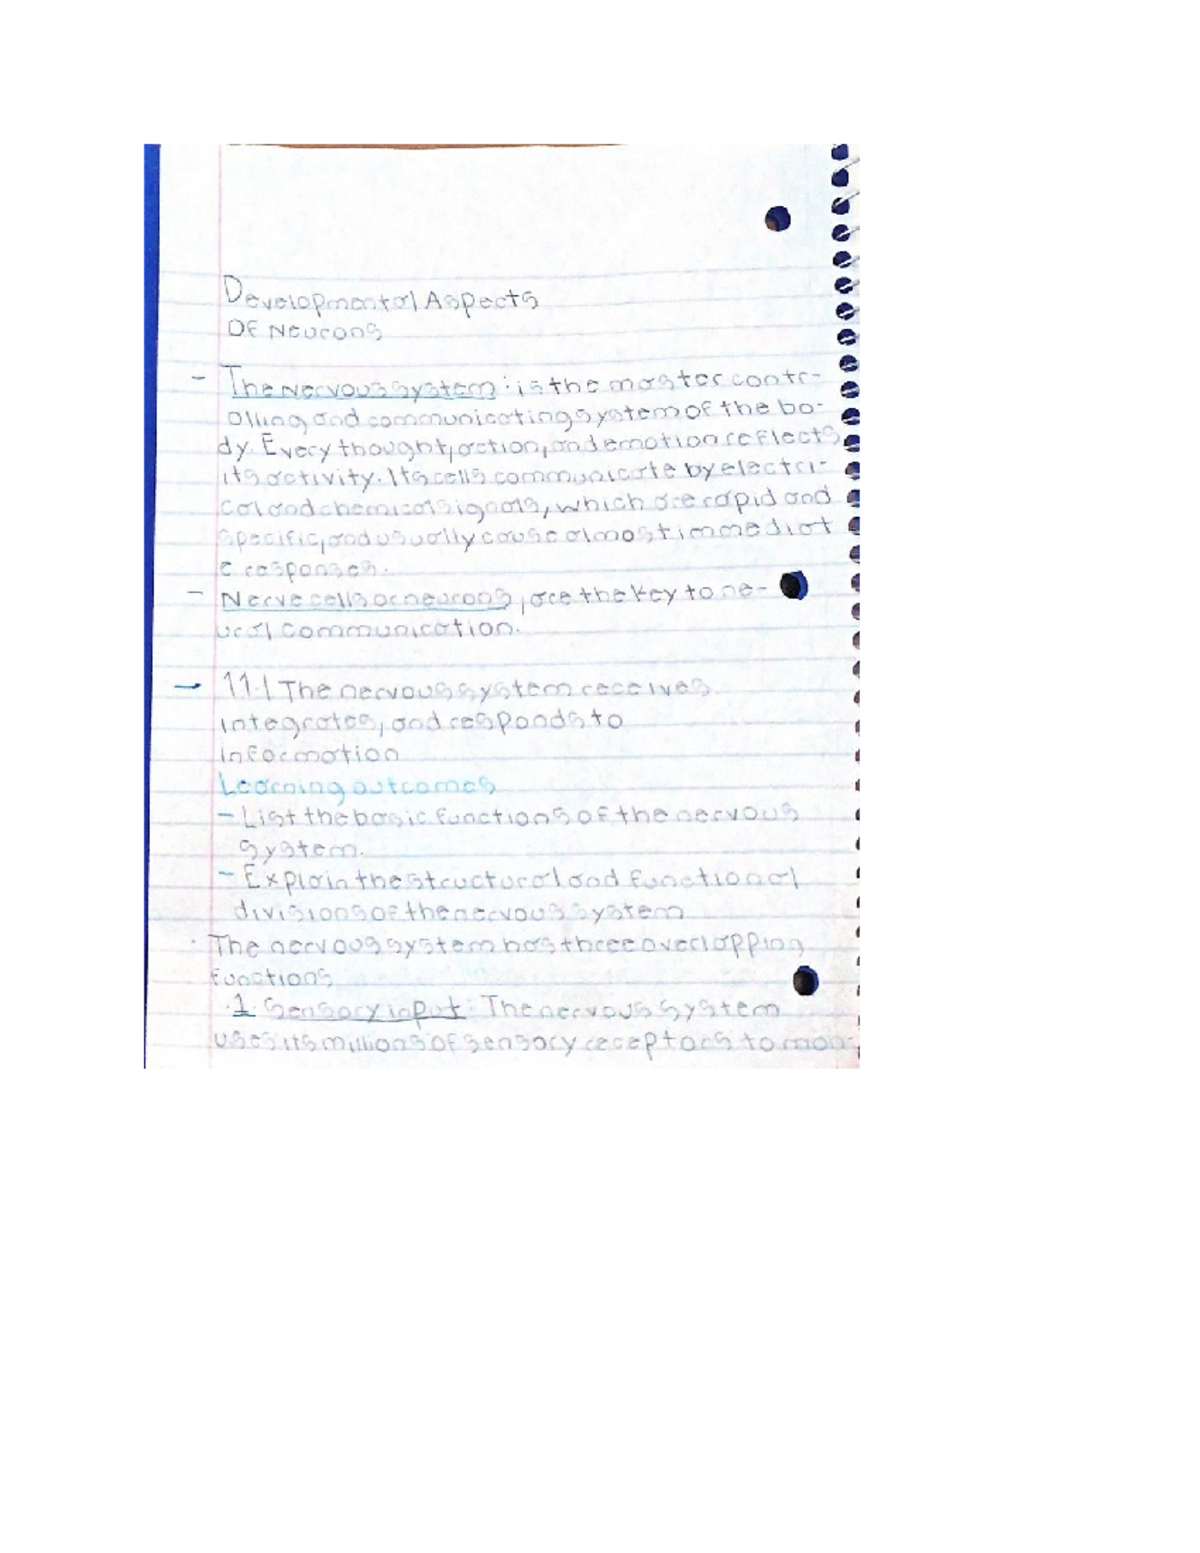 Developmental Aspects
Of Neurons
- The Nervous system: is the master contr-
olling and communicating system of the bo-
dy. Every thought, action, and emotion reflects
its activity. Its cells communicate by electri-
cal and chemical signals, which are rapid and
specific, and usually cause almost immediat
e responses.
- Nerve cells or neurons, are the key to ne-
ural communication.
- 11.1 The nervous system receives
integrates, and responds to
information
Learning outcomes
- List the basic functions of the nervous
system.
- Explain the structural and functional
divisions of the nervous system
· The nervous system has three overlapping
functions
·1· Sensory input: The nervous system
uses its millions of sensory receptors to mon-